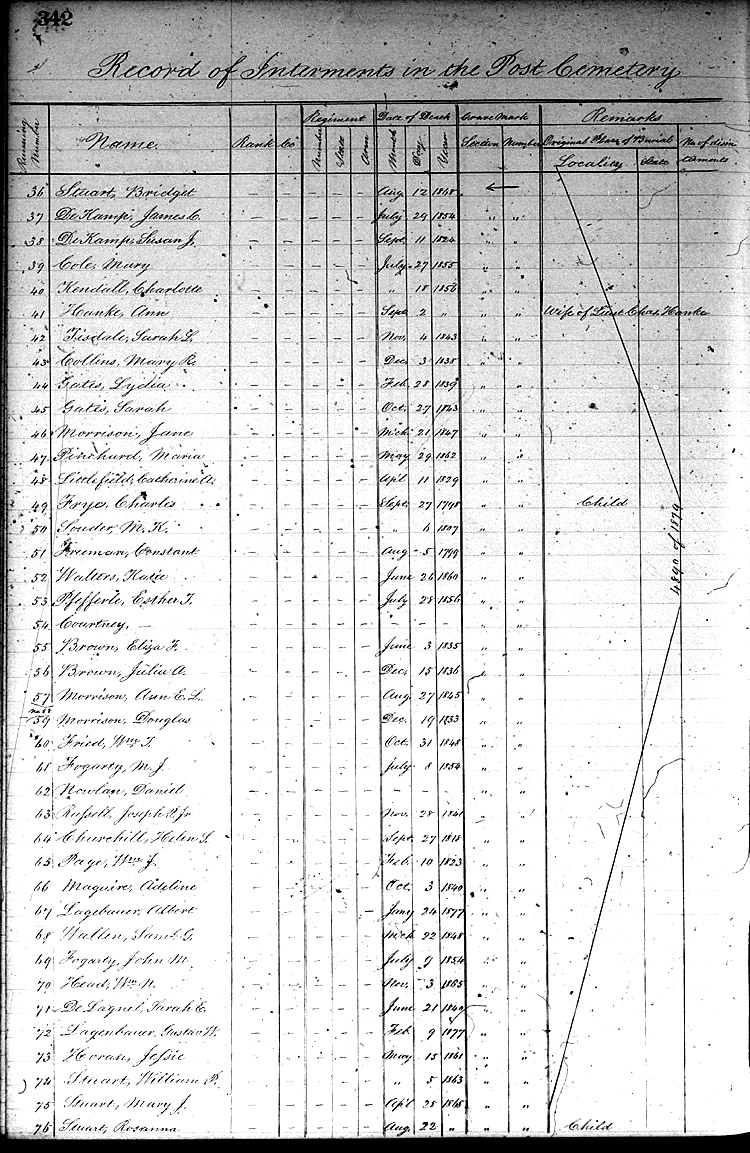 342
Record of Interments in the Post Cemetery
Regiment Date of Death Grave Mark Remarks
Running Number Name. Rank Co Number State Arm Month Day Year Section Number Original Place of Burial No. of disin-
Locality State terments
36 Stuart, Bridget — — — — — Aug 12 1868 ←
37 DeKamp, James C. — — — — — July 29 1854 " "
38 DeKamp, Susan J. — — — — — Sept. 11 1824 " "
39 Cole, Mary — — — — — July 27 1855 " "
40 Kendall, Charlotte — — — — — " 18 1856 " "
41 Hanke, Ann — — — — — Sept 2 " " " Wife of Lieut Chas. Hanke
42 Tisdale, Sarah L. — — — — — Nov. 4 1843 " "
43 Collins, Mary R. — — — — — Dec. 3 1838 " "
44 Gates, Lydia — — — — — Feb. 28 1839 " "
45 Gates, Sarah — — — — — Oct. 27 1843 " "
46 Morrison, Jane — — — — — Mch 21 1847 " "
47 Pinchard, Maria — — — — — May 29 1862 " "
48 Littlefield, Catharine A. — — — — — Apl 11 1829 " "
49 Frye, Charles — — — — — Sept. 27 1798 " " Child
50 Souder, M. K. — — — — — " 6 1807 " "
51 Freeman, Constant — — — — — Aug 5 1799 " "
4890 of 1879
52 Walters, Katie — — — — — June 26 1860 " "
53 Pfefferle, Esther T. — — — — — July 28 1856 " "
54 Courtney, — — — — — — — — — " "
55 Brown, Eliza F. — — — — — June 3 1835 " "
56 Brown, Julia A. — — — — — Dec. 15 1836 " "
57 Morrison, Ann E. L. — — — — — Aug. 27 1845 " "
No 58
59 Morrison, Douglas — — — — — Dec. 19 1833 " "
60 Fried, Wm T. — — — — — Oct. 31 1848 " "
61 Fogarty, M. J. — — — — — July 8 1854 " "
62 Nowlan, Daniel — — — — — — — — " "
63 Russell, Joseph P. Jr — — — — — Nov. 28 1841 " "
64 Churchill, Helen S. — — — — — Sept. 27 1818 " "
65 Page, Wm J. — — — — — Feb. 10 1823 " "
66 Maguire, Adeline — — — — — Oct. 3 1840 " "
67 Lagebauer, Albert — — — — — Jany 24 1877 " "
68 Wallen, Saml G. — — — — — Mch 22 1848 " "
69 Fogarty, John M. — — — — — July 9 1854 " "
70 Head, Wm N. — — — — — Nov. 3 1865 " "
71 De Lagnel, Sarah E. — — — — — June 21 1840 " "
72 Lagenbauer, Gustav W. — — — — — Feb. 9 1877 " "
73 Horan, Jessie — — — — — May 15 1861 " "
74 Stuart, William P. — — — — — " 5 1863 " "
75 Stuart, Mary J. — — — — — Apl 28 1868 " "
76 Stuart, Rosanna — — — — — Aug. 22 " " " Child